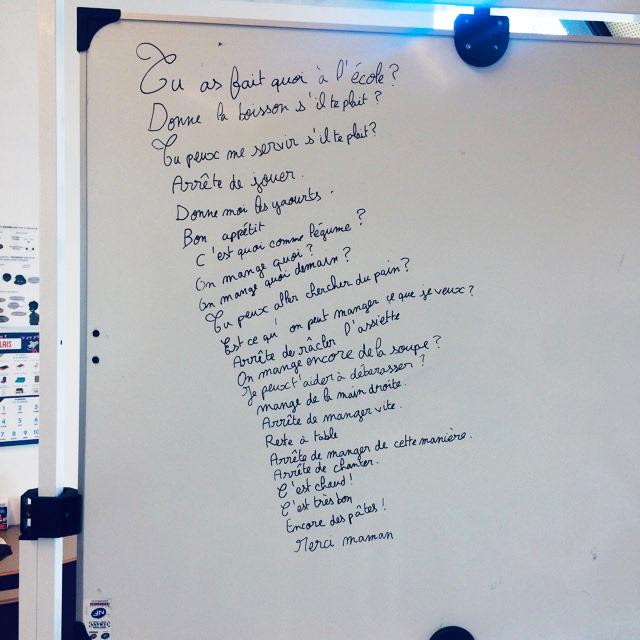 Tu as fait quoi à l'école ?
Donne la boisson s'il te plait ?
Tu peux me servir s'il te plait ?
Arrête de jouer.
Donne moi les yaourts.
Bon appétit
C'est quoi comme légume ?
On mange quoi ?
On mange quoi demain ?
Tu peux aller chercher du pain ?
Est ce qu'on peut manger ce que je veux ?
Arrête de râcler l'assiette
On mange encore de la soupe ?
Je peux t'aider à débarasser ?
mange de la main droite.
Arrête de manger vite.
Reste à table
Arrête de manger de cette manière.
Arrête de chanter.
C'est chaud !
C'est très bon
Encore des pâtes !
Merci maman
LAIS